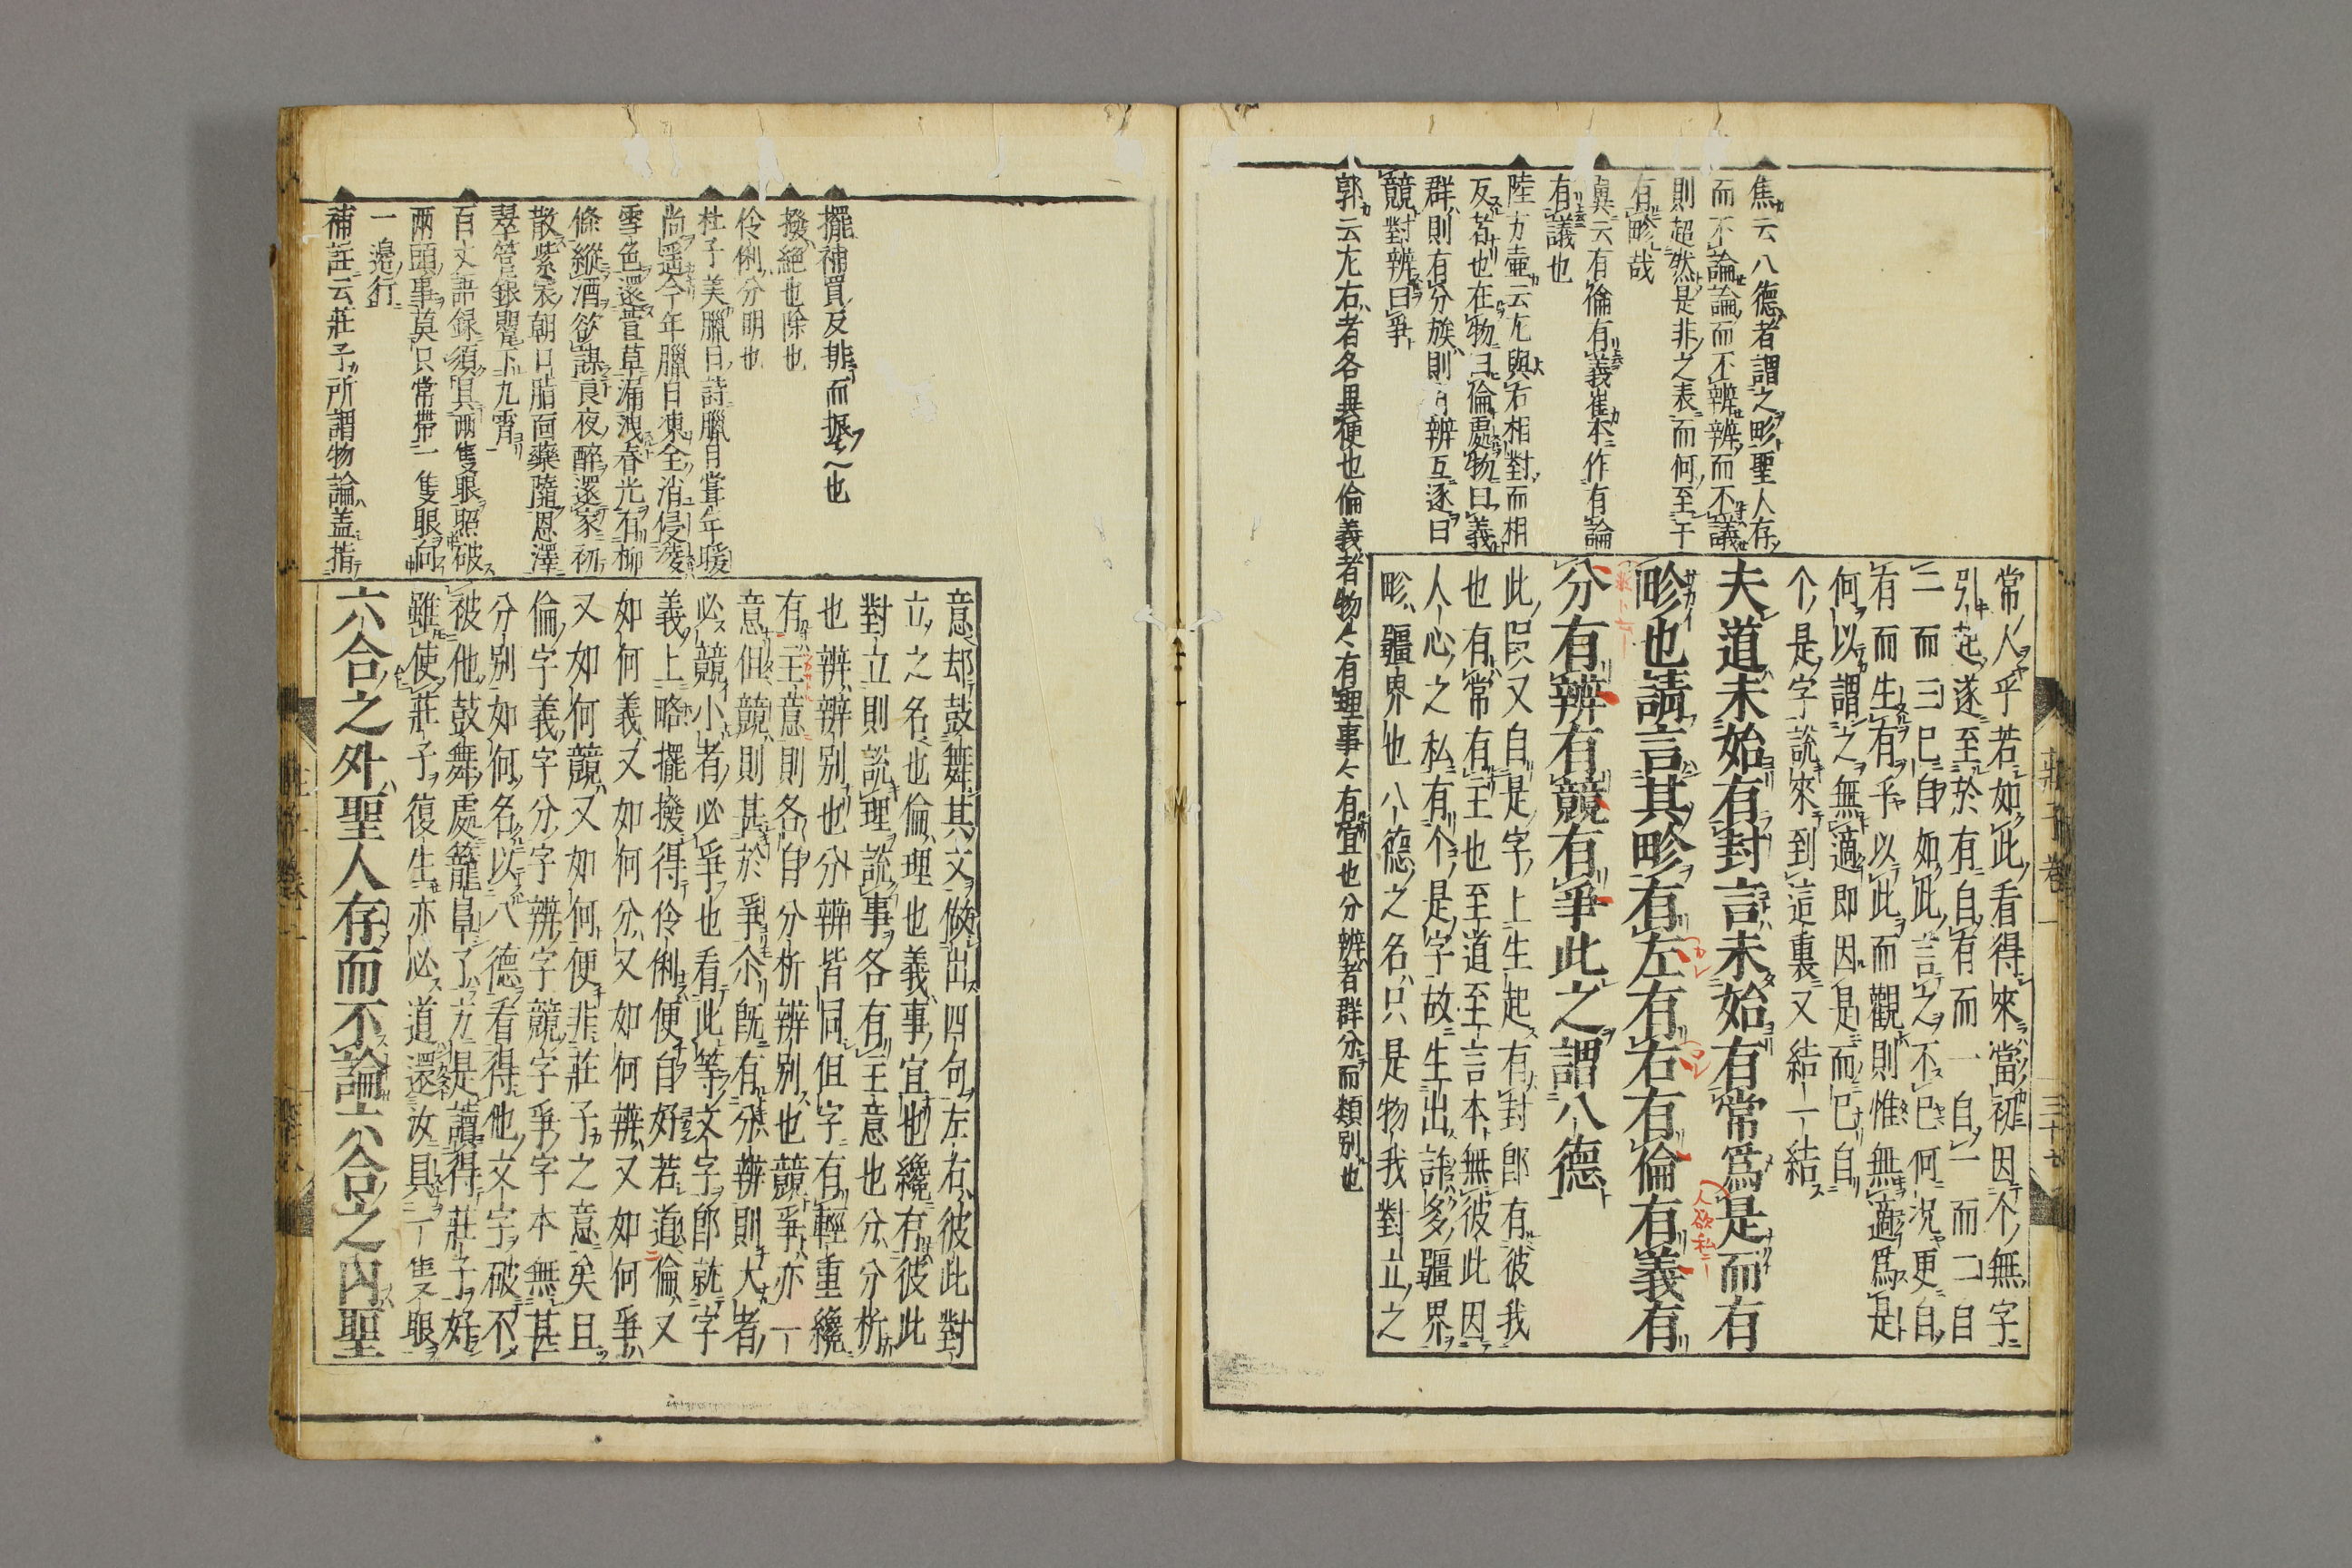 焦云八德者謂之畛聖人存
而不論論而不辨辨而不議
則超然是非之表而何至于
有畛哉
奠云有倫有義崔本作有論
有議也
陸方壺云左與右相對而相
反者也在物曰倫處物曰義
群則有分族則有辨互逐曰
競對辨曰爭
郭云左右者各異便也倫義者物々有理事々有宜也分辨者群分而類別也
常人乎若如此看得來當初因个無字
引起遂至於有自有而一自一而二自
二而三已自如此言之不已何況更自
有而生有乎以此而觀則惟無適爲是
何以謂之無適即因是而已自
个是字說來到這裏又結一結
夫道未始有封言未始有常爲是而有
畛也請言其畛有左有右有倫有義有
分有辨有競有爭此之謂八德
此段又自是字上生起有封即有彼我
也有常有主也至道至言本無彼此因
人心之私有个是字故生出許多疆界
畛疆界也八德之名只是物我對立之
人欲私
莊子卷一
三十七
擺補買反排而振之也
撥絕也除也
伶俐分明也
杜子美臘日詩臘日常年暖
尚遥今年臘日凍全消侵陵
雪色還萱草漏洩春光有柳
條縱酒欲謀良夜醉還家初
散紫宸朝口脂面藥隨恩澤
翠管銀罌下九霄
百丈語録須具兩隻眼照破
兩頭事莫只常帶一隻眼向
一邉行
補註云莊子所謂物論盖指
意却鼓舞其文做出四句左右彼此對
立之名也倫理也義事宜也纔有彼此
對立則說理說事各有主意也分分析
也辨辨別也分辨皆同但字有輕重纔
有主意則各自分析辨別也競爭亦一
意但競則甚於爭尒既有分辨則大者
必競小者必爭也看此等文字即就字
義上略擺撥得伶俐便自好若道倫又
如何義又如何分又如何辨又如何爭
又如何競又如何便非莊子之意矣且
倫字義字分字辨字競字爭字本無甚
分別如何名以八德看得他文字破不
被他鼓舞處籠罩了方是讀得莊子好
雖使莊子復生亦必道還汝具一隻眼
六合之外聖人存而不論六合之内聖